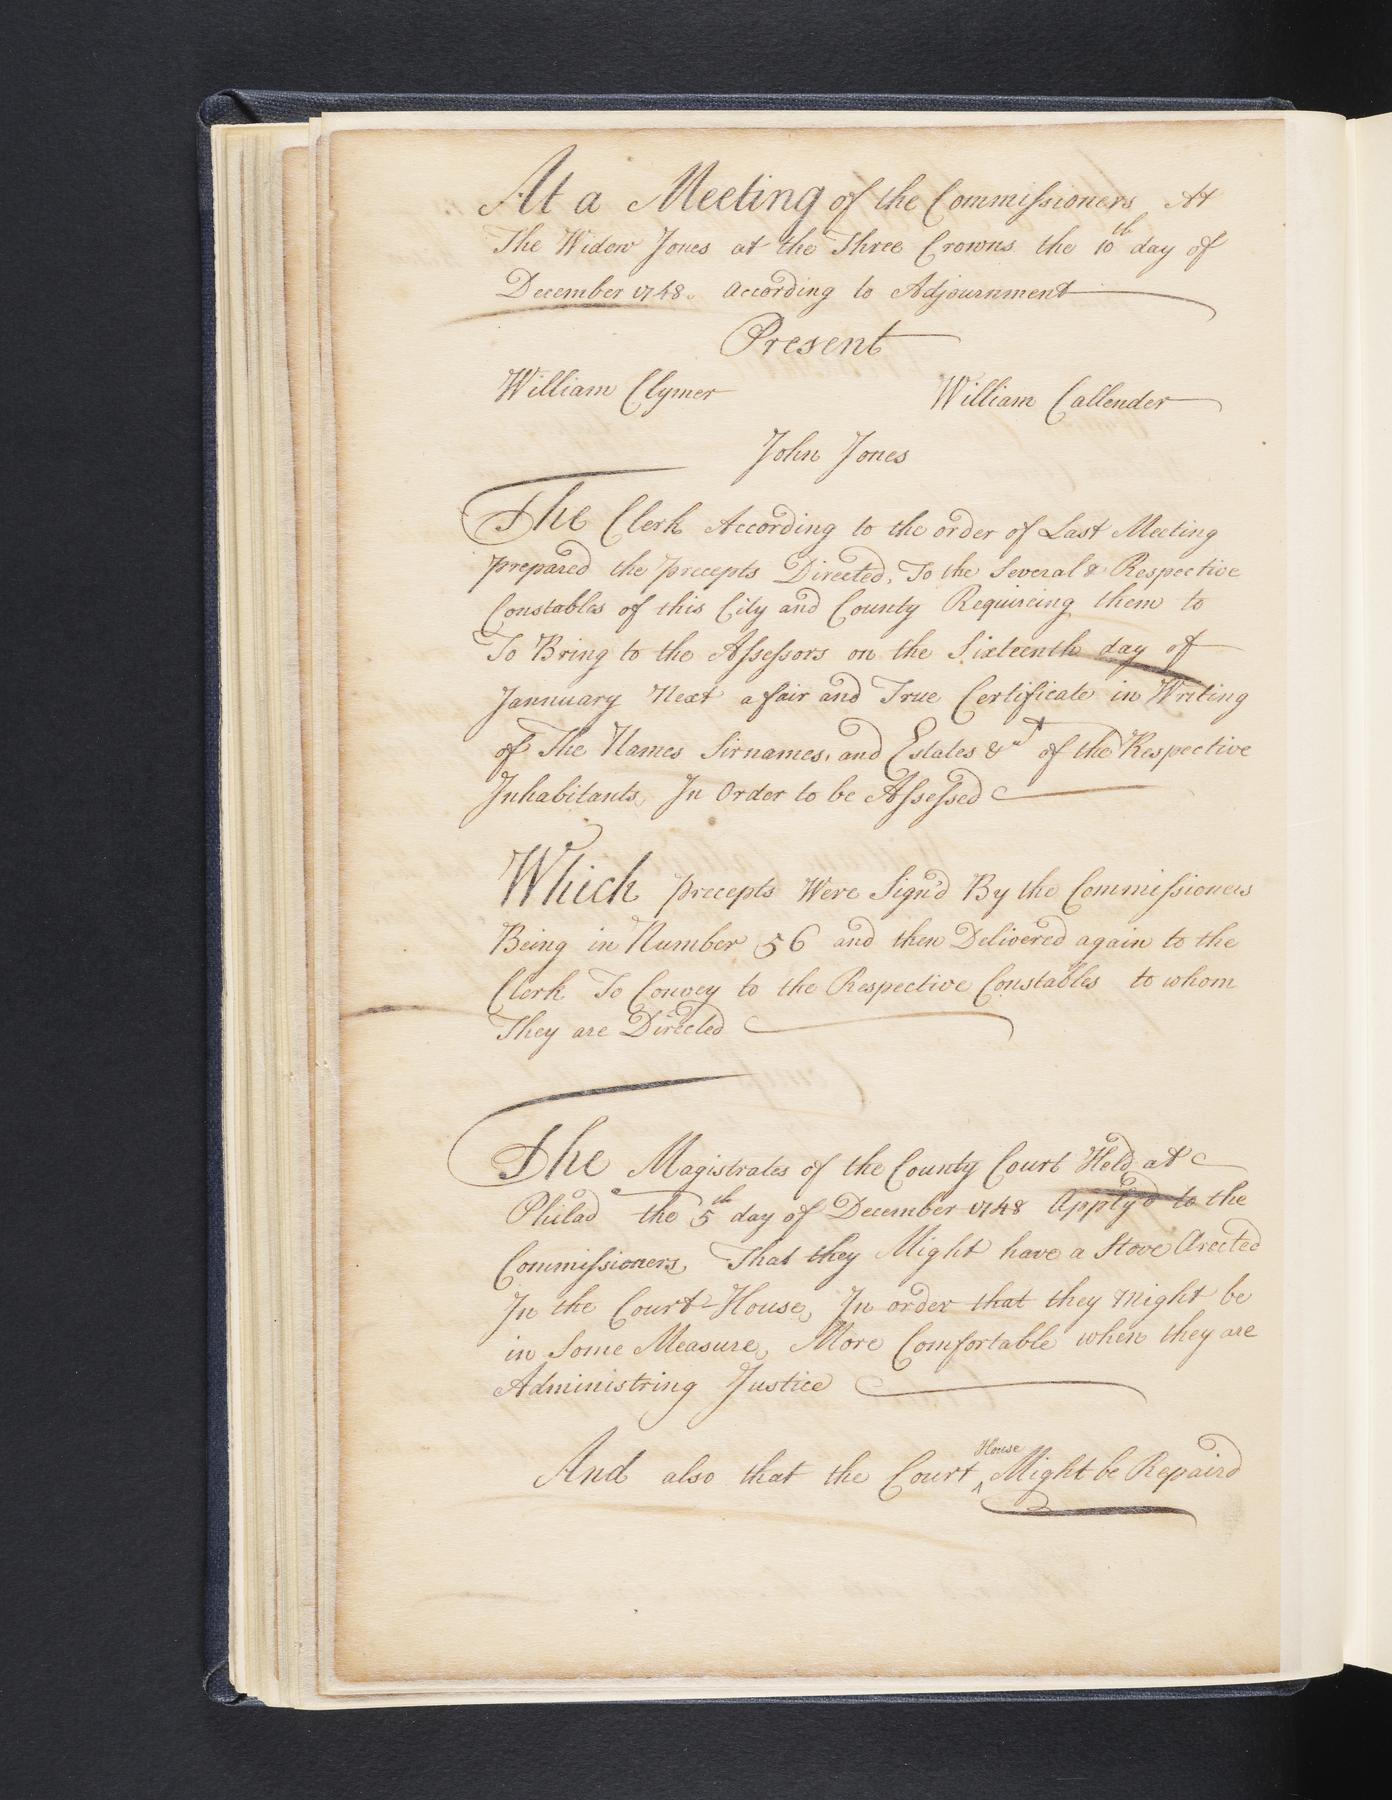 At a Meeting of the Commissioners At
The Widow Jones at the Three Crowns the 10th day of
December 1748. according to Adjournment
Present
William Clymer William Callender
John Jones
The Clerk According to the order of Last Meeting
prepared the precepts Directed, To the Several & Respective
Constables of this City and County Requireing them to
To Bring to the Assessors on the Sixteenth day of
Jannuary Next a fair and True Certificate in Writing
of The Names Sirnames, and Estates of the Respective
Inhabitants, In Order to be Assessed
Which precepts Were Sign'd By the Commissioners
Being in Number 56 and then Delivered again to the
Clerk To Convey to the Respective Constables to whom
They are Directed
The Magistrates of the County Court Held at
Philad the 5th day of December 1748 Apply'd to the
Commissioners, That they Might have a Stove Arected
In the Court-House, In order that they might be
in Some Measure, More Comfortable when they are
Administring Justice
And also that the Court House Might be Repaird